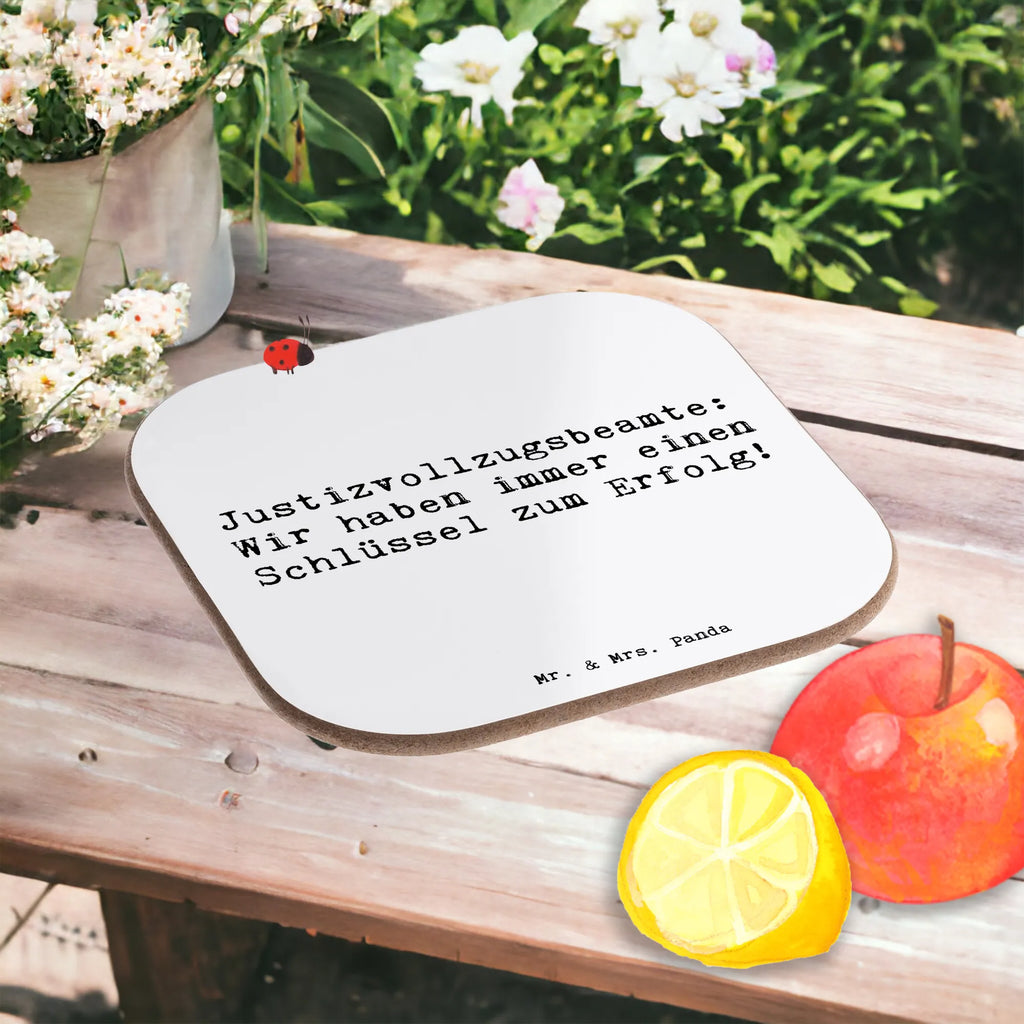 Justizvollzugsbeamte:
Wir haben immer einen
Schlüssel zum Erfolg!
Mr. & Mrs. Panda